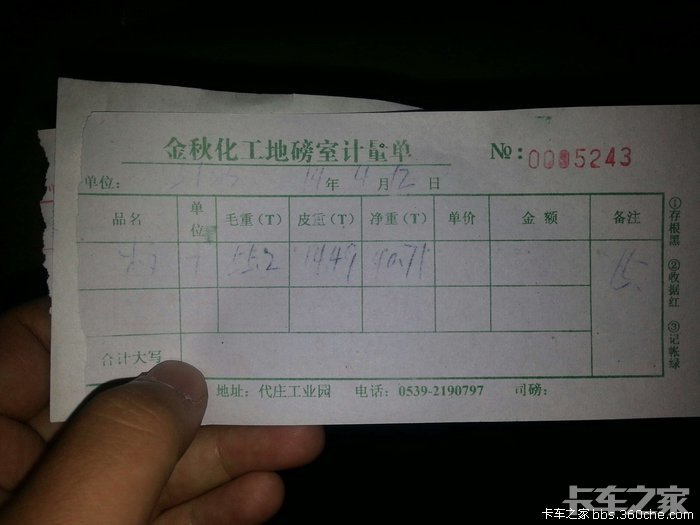 金秋化工地磅室计量单 №: 0005243
单位: 14年4月12日
品名 单位 毛重(T) 皮重(T) 净重(T) 单价 金额 备注
T 55.2 14.49 40.71
合计大写
地址: 代庄工业园 电话: 0539-2190797 司磅:
①存根黑 ②收据红 ③记帐绿
卡车之家
卡车之家 bbs.360che.com